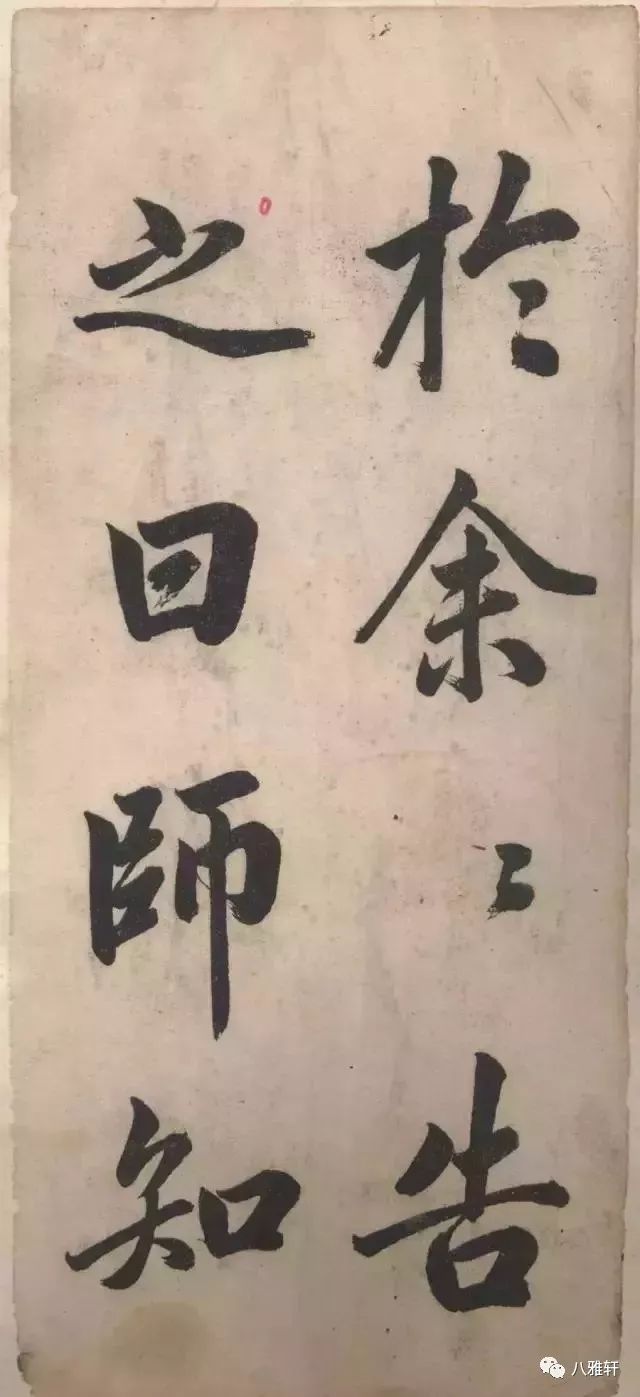 於余〻告
之曰師知
八雅轩